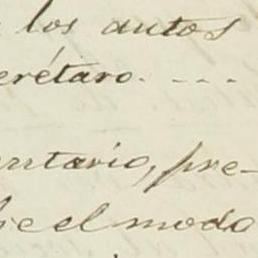 los autos
erétaro. - - -
entario, pre-
bre el modo